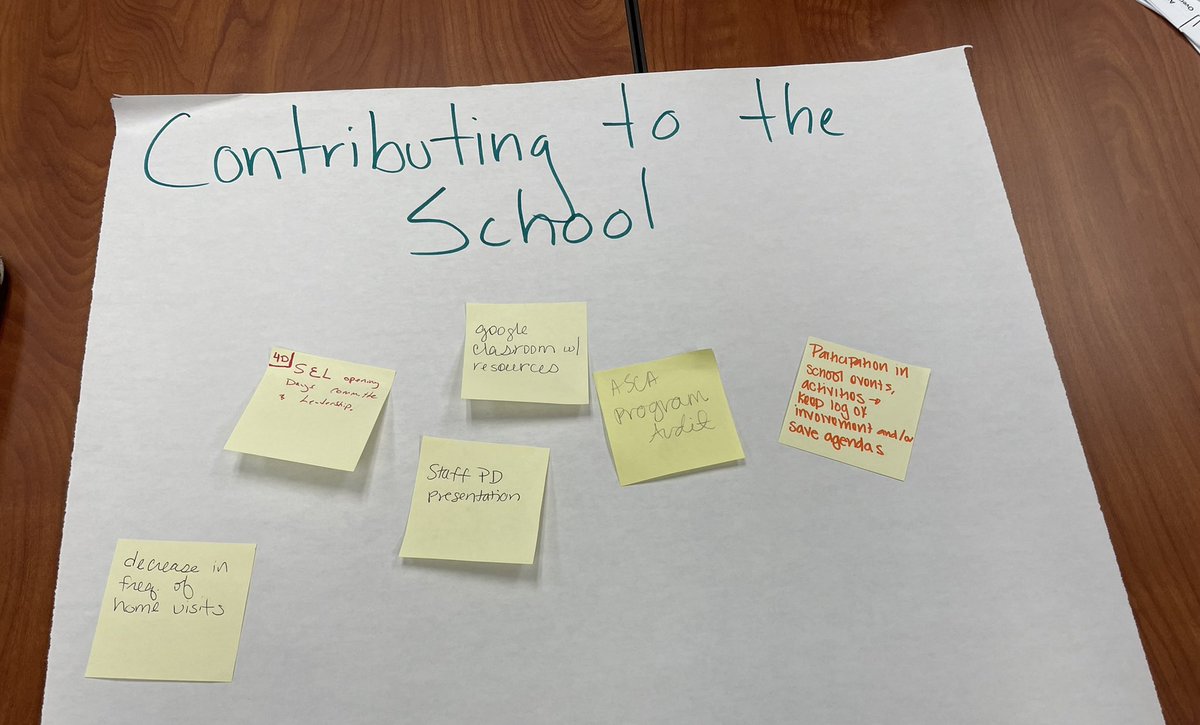 Contributing to the
School
google
classroom w/
resources
4D SEL opening
Days committe
& Leadership.
ASCA
Program
Audit
Participation in
school events,
activities →
keep log of
involvement and/or
save agendas
Staff PD
presentation
decrease in
freq. of
home visits